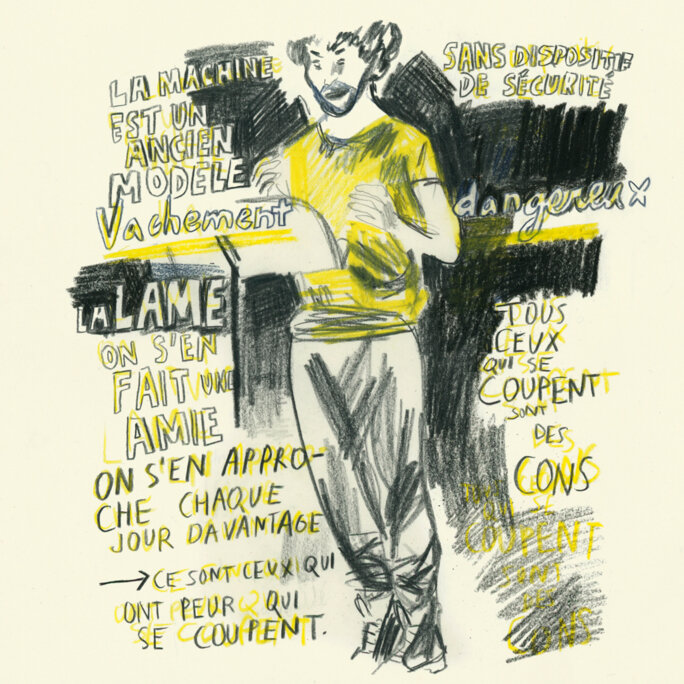 LA MACHINE
EST UN
ANCIEN
MODÈLE
Vachement
SANS DISPOSITIF
DE SÉCURITÉ
dangereux
LA LAME
ON S'EN
FAIT UNE
AMIE
ON S'EN APPRO-
CHE CHAQUE
JOUR DAVANTAGE
→ CE SONT CEUX QUI
ONT PEUR QUI
SE COUPENT.
TOUS
CEUX
QUI SE
COUPENT
SONT
DES
CONS
TOUS CEUX
QUI SE
COUPENT
SONT
DES
CONS